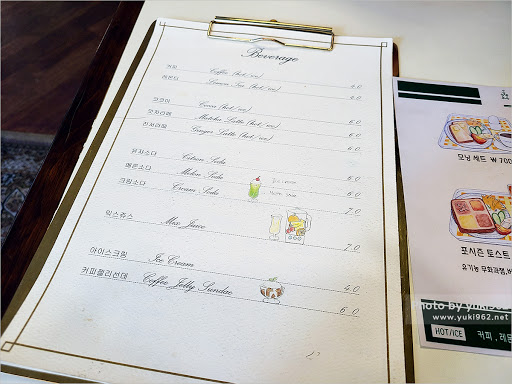 Beverage
커피 Coffee (hot/ice) 4.0
레몬티 Lemon Tea (hot/ice) 6.0
코코아 Cocoa (hot/ice) 6.0
말차라떼 Matcha Latte (hot/ice) 6.0
진저라떼 Ginger Latte (hot/ice) 6.0
유자소다 Citron Soda 5.0
메론소다 Melon Soda 6.0
크림소다 Cream Soda 7.0
믹스쥬스 Mix Juice 7.0
아이스크림 Ice Cream 4.0
커피젤리선데 Coffee Jelly Sundae 6.0
모닝 세트 ₩ 700
포시즌 토스트
유기농 무화과잼,버
HOT/ICE 커피 , 레몬
photo by yuki962
www.yuki962.net